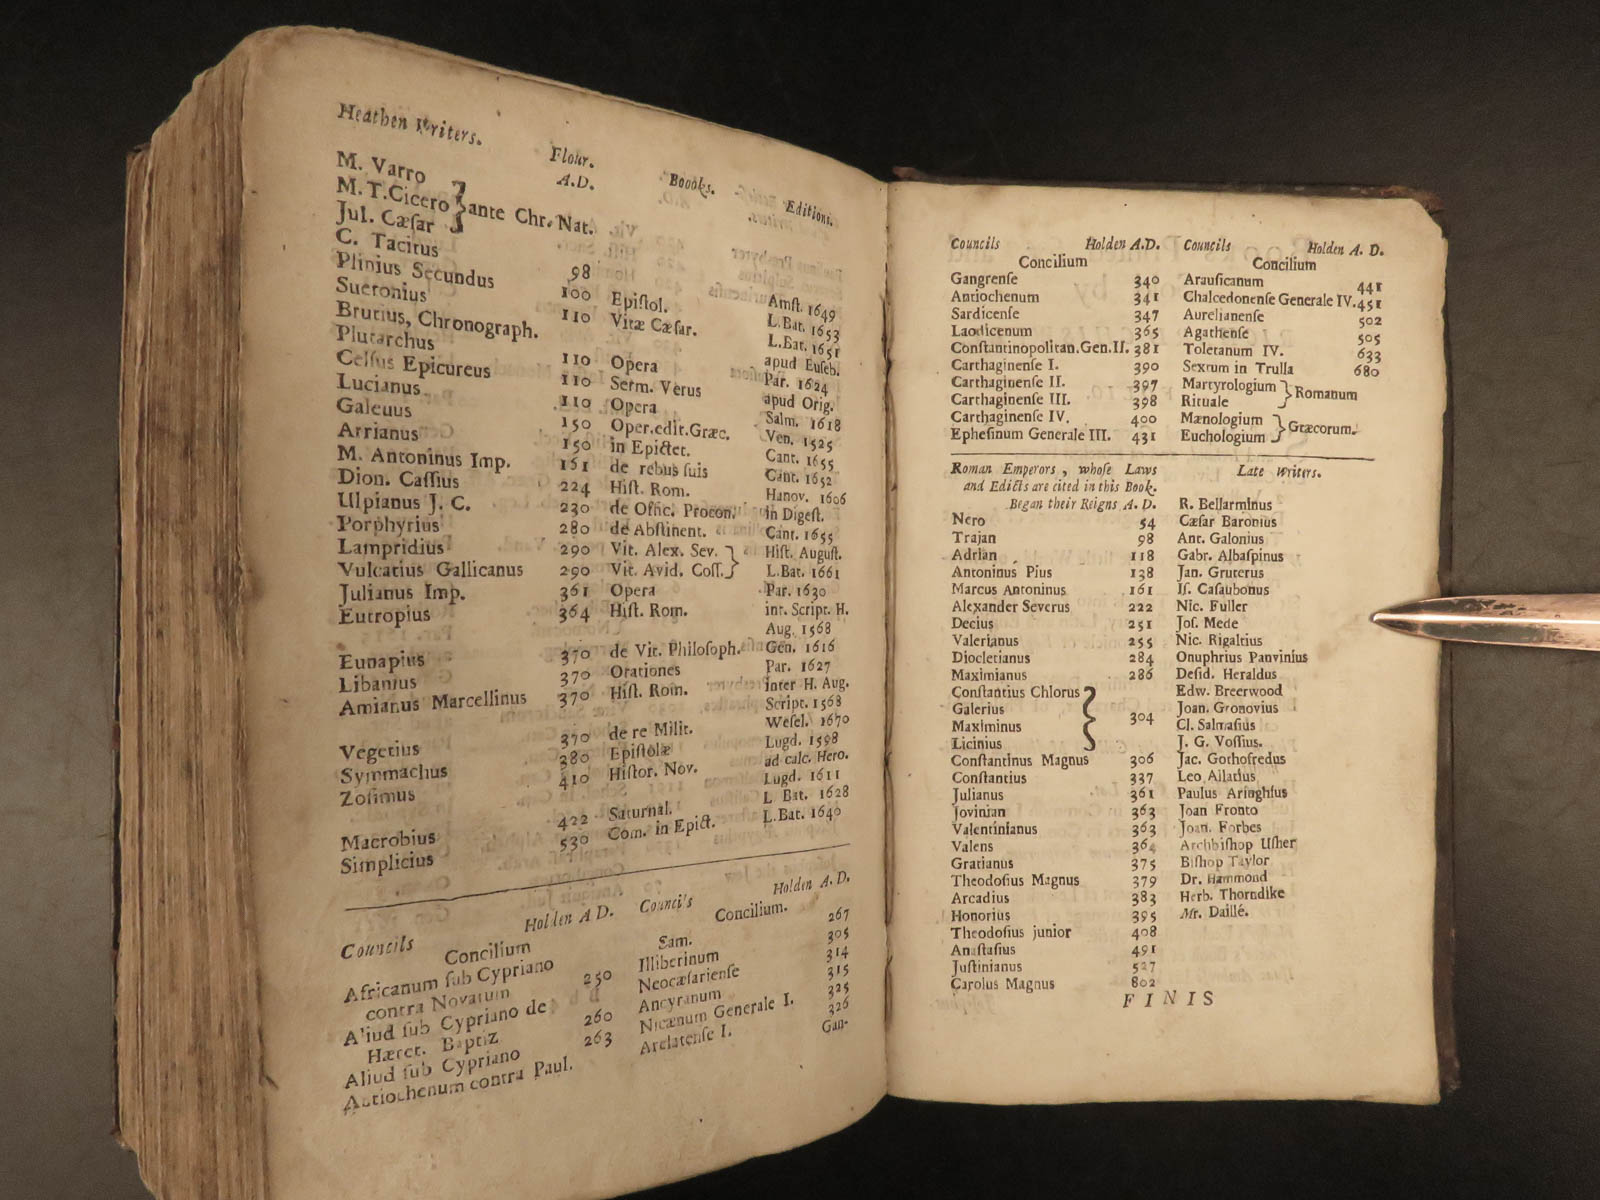 Heathen Writers. Flour. A.D. Boooks. Editions.
M. Varro
M. T. Cicero } ante Chr. Nat.
Jul. Cæſar
C. Tacitus 98 Amſt. 1649
Plinius Secundus 100 Epiſtol. L.Bat. 1653
Suetonius 110 Vitæ Cæſar. L.Bat. 1651
Brutius, Chronograph. apud Euſeb.
Plutarchus 110 Opera Par. 1624
Celſus Epicureus 110 Serm. Verus apud Orig.
Lucianus 110 Opera Salm. 1618
Galenus 150 Oper.edit.Græc. Ven. 1525
Arrianus 150 in Epictet. Cant. 1655
M. Antoninus Imp. 161 de rebus ſuis Cant. 1652
Dion. Caſſius 224 Hiſt. Rom. Hanov. 1606
Ulpianus J. C. 230 de Offic. Procon. in Digeſt.
Porphyrius 280 de Abſtinent. Cant. 1655
Lampridius 290 Vit. Alex. Sev. } Hiſt. Auguſt.
Vulcatius Gallicanus 290 Vit. Avid. Coſſ. } L.Bat. 1661
Julianus Imp. 361 Opera Par. 1630
Eutropius 364 Hiſt. Rom. int. Script. H.
Aug. 1568
Eunapius 370 de Vit. Philoſoph. Gen. 1616
Libanius 370 Orationes Par. 1627
Amianus Marcellinus 370 Hiſt. Rom. inter H. Aug.
Script. 1568
Vegetius 370 de re Milit. Weſel. 1670
Symmachus 380 Epiſtolæ Lugd. 1598
Zoſimus 410 Hiſtor. Nov. ad calc. Hero.
Lugd. 1611
Macrobius 422 Saturnal. L Bat. 1628
Simplicius 530 Com. in Epict. L.Bat. 1640
Councils Holden A D.
Concilium
Africanum ſub Cypriano
contra Novatum 250
Aliud ſub Cypriano de
Hæret. Baptiz 260
Aliud ſub Cypriano 263
Antiochenum contra Paul.
Councils Holden A. D.
Concilium.
Sam. 267
Illiberinum 305
Neocæſarienſe 314
Ancyranum 315
Nicænum Generale I. 325
Arelatenſe I. 326
Gan-
Councils Holden A.D.
Concilium
Gangrenſe 340
Antiochenum 341
Sardicenſe 347
Laodicenum 365
Conſtantinopolitan.Gen.II. 381
Carthaginenſe I. 390
Carthaginenſe II. 397
Carthaginenſe III. 398
Carthaginenſe IV. 400
Epheſinum Generale III. 431
Councils Holden A. D.
Concilium
Arauſicanum 441
Chalcedonenſe Generale IV. 451
Aurelianenſe 502
Agathenſe 505
Toletanum IV. 633
Sextum in Trulla 680
Martyrologium } Romanum
Rituale
Mænologium } Græcorum.
Euchologium
Roman Emperors, whoſe Laws
and Edicts are cited in this Book.
Began their Reigns A. D.
Nero 54
Trajan 98
Adrian 118
Antoninus Pius 138
Marcus Antoninus 161
Alexander Severus 222
Decius 251
Valerianus 255
Diocletianus 284
Maximianus 286
Conſtantius Chlorus
Galerius
Maximinus } 304
Licinius
Conſtantinus Magnus 306
Conſtantius 337
Julianus 361
Jovinian 363
Valentinianus 363
Valens 364
Gratianus 375
Theodoſius Magnus 379
Arcadius 383
Honorius 395
Theodoſius junior 408
Anaſtaſius 491
Juſtinianus 527
Carolus Magnus 802
Late Writers.
R. Bellarminus
Cæſar Baronius
Ant. Galonius
Gabr. Albaſpinus
Jan. Gruterus
Iſ. Caſaubonus
Nic. Fuller
Joſ. Mede
Nic. Rigaltius
Onuphrius Panvinius
Deſid. Heraldus
Edw. Breerwood
Joan. Gronovius
Cl. Salmaſius
J. G. Voſſius.
Jac. Gothofredus
Leo Allatius
Paulus Aringhius
Joan Fronto
Joan. Forbes
Archbiſhop Uſher
Biſhop Taylor
Dr. Hammond
Herb. Thorndike
Mr. Daillé.
FINIS